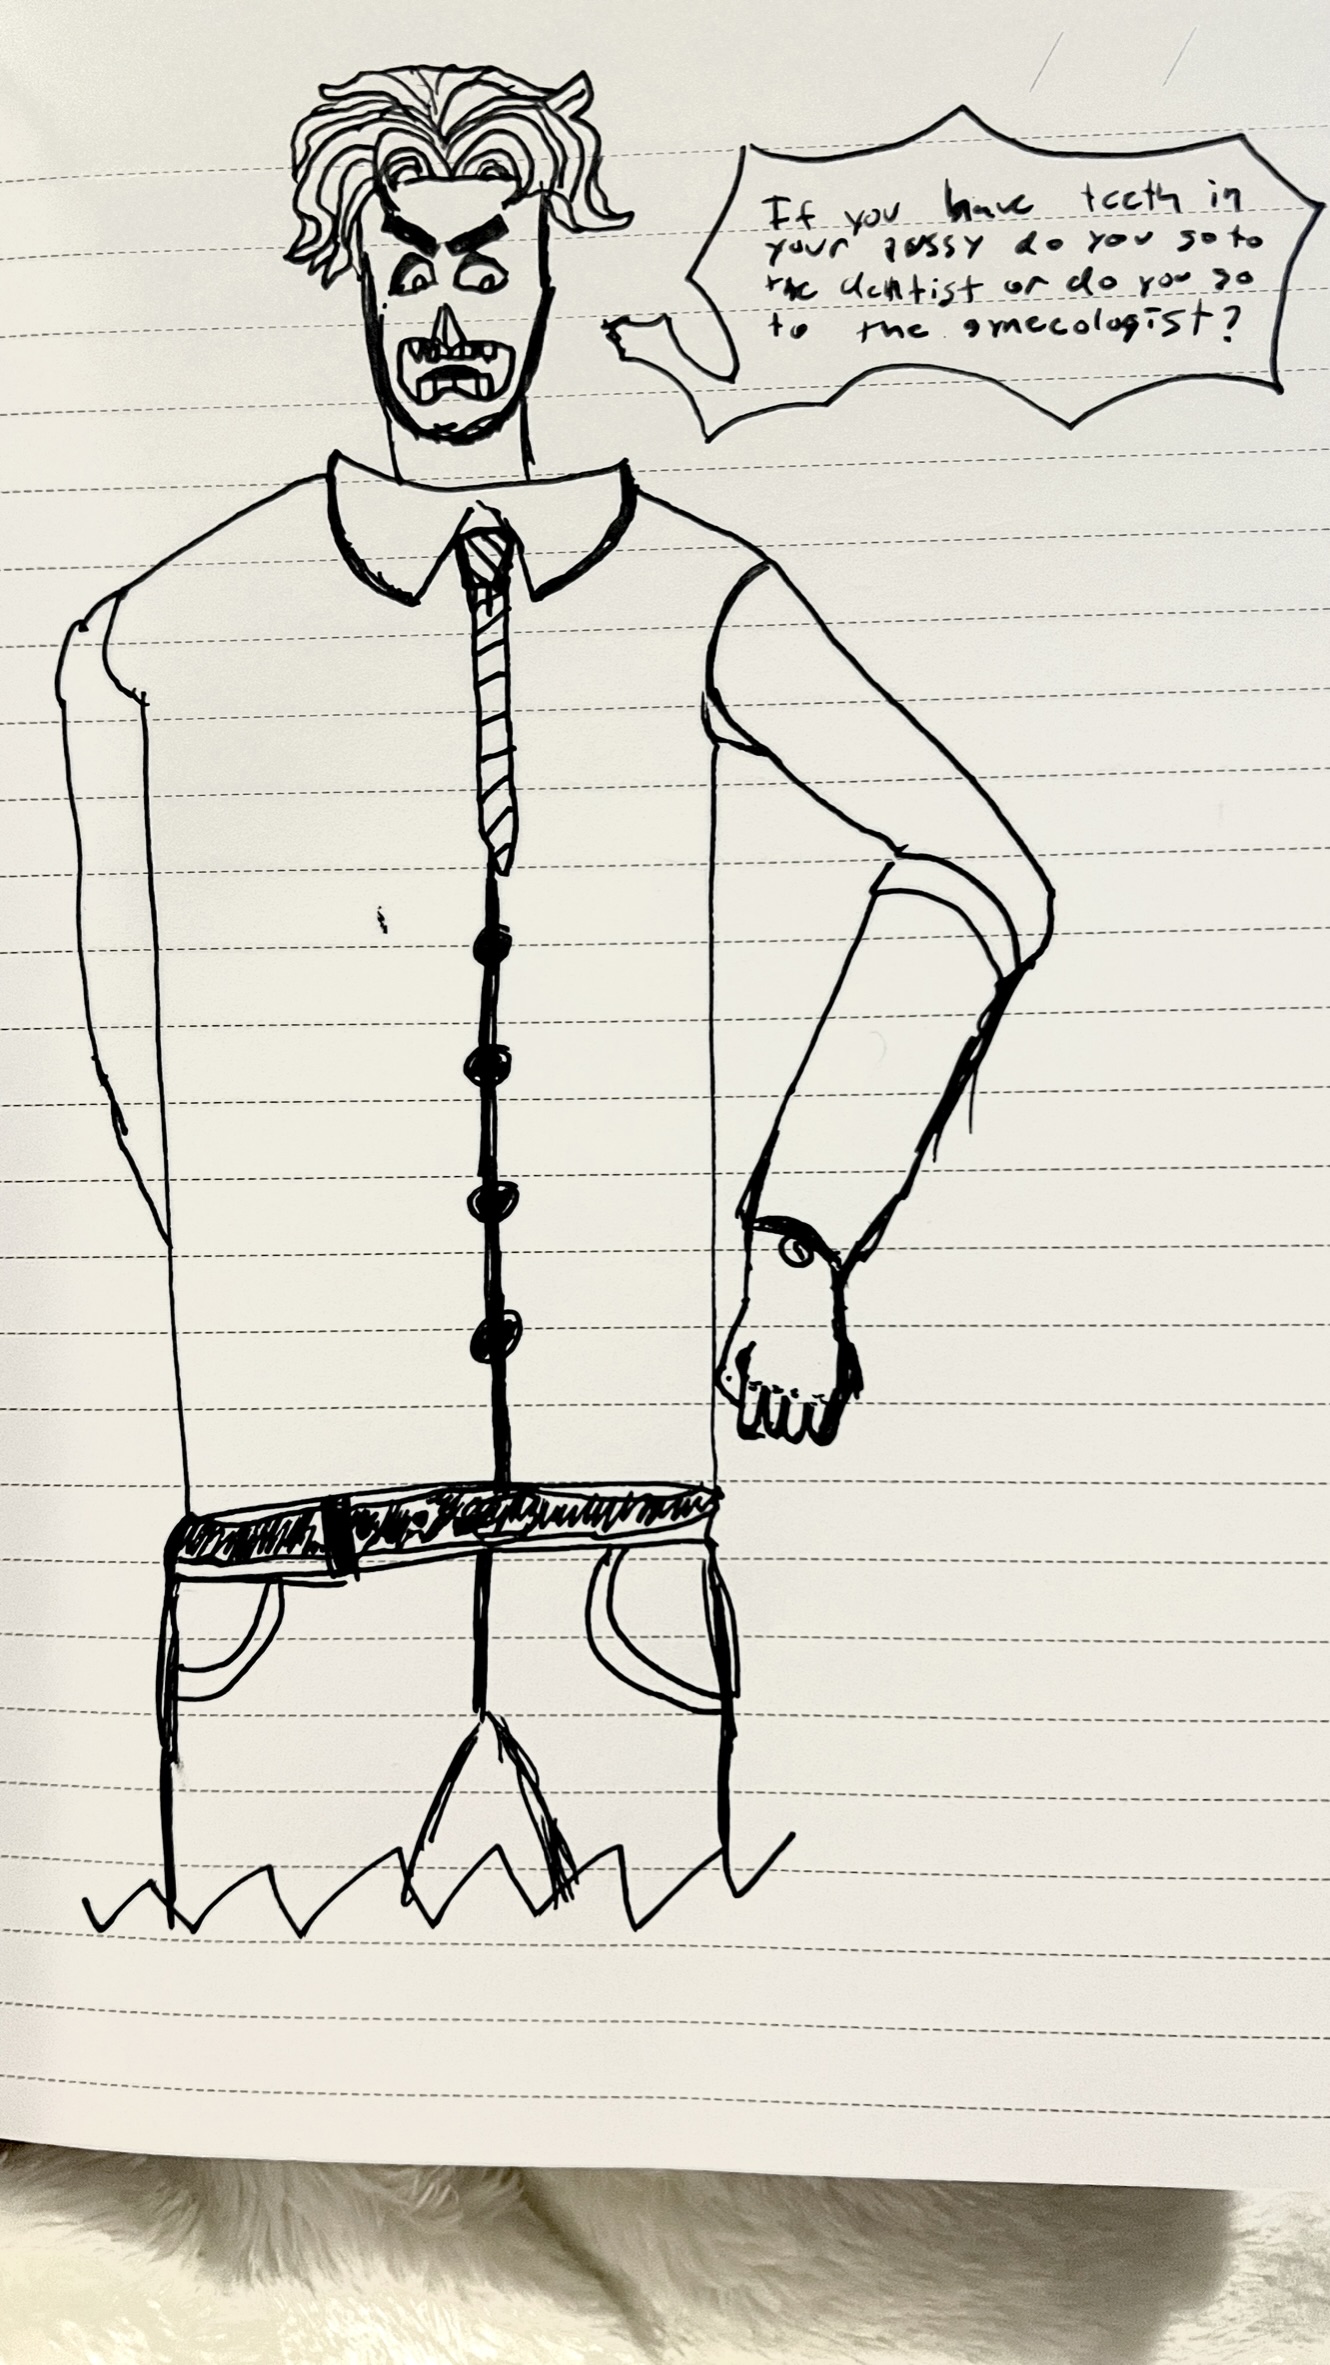 If you have teeth in
your pussy do you go to
the dentist or do you go
to the gmecologist?